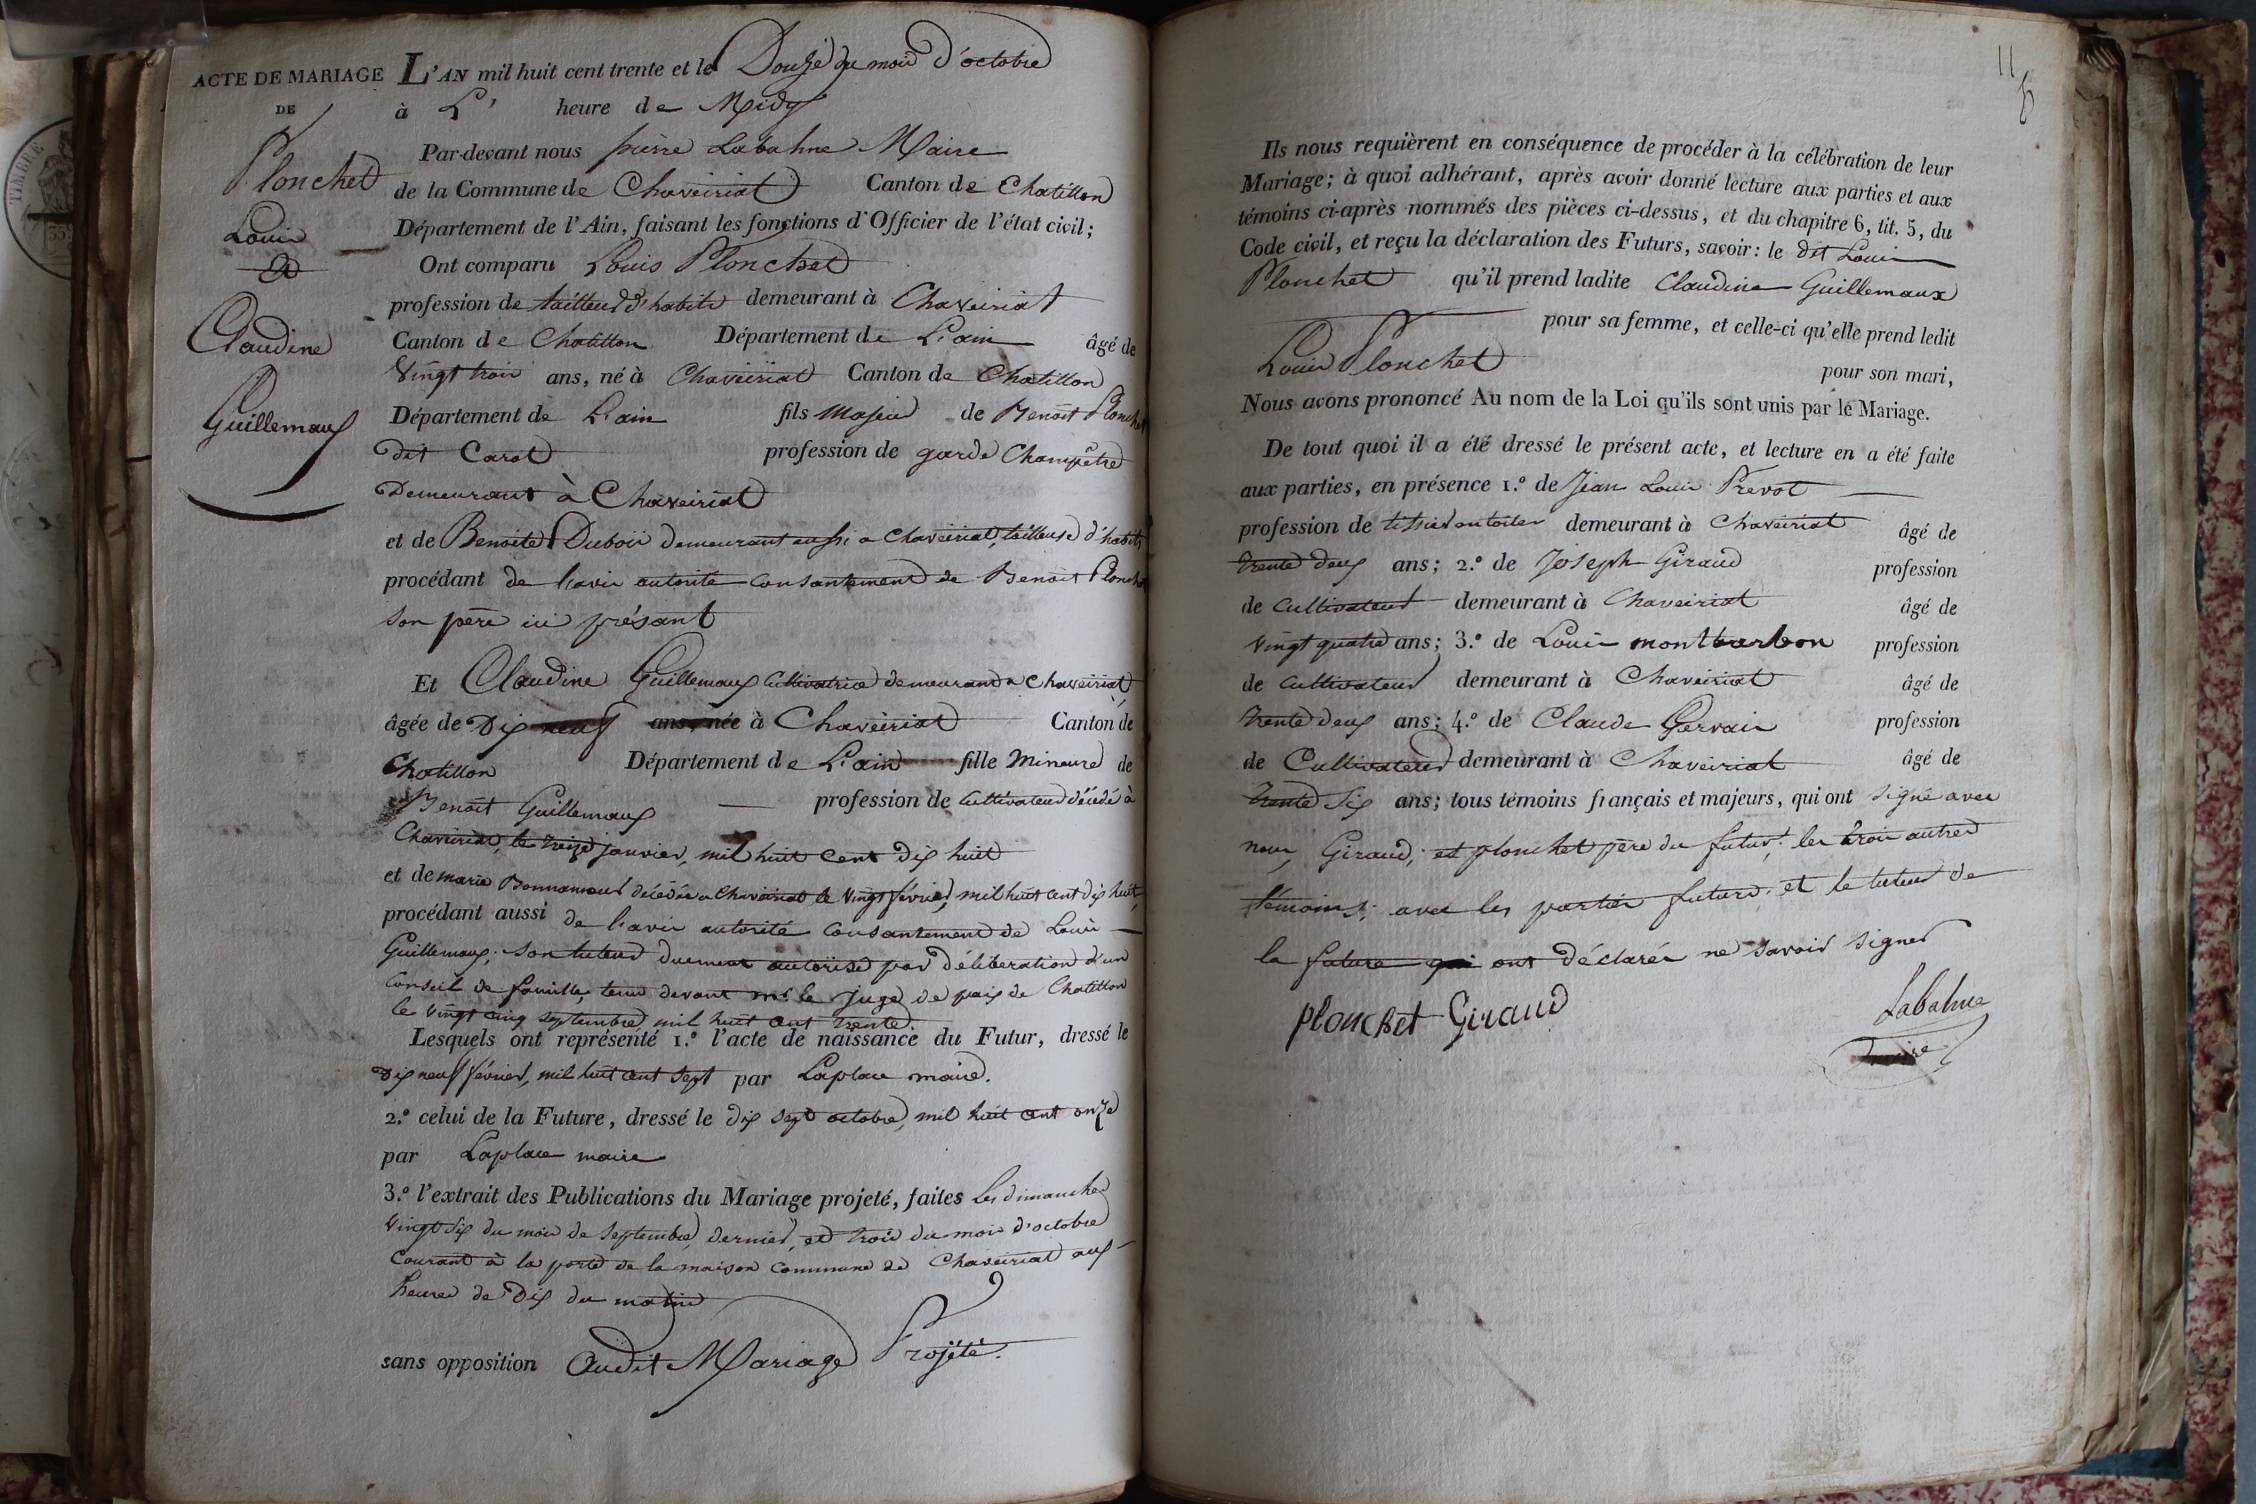 ACTE DE MARIAGE
DE
Plonchet
Louis
et
Claudine
Guillemaux
L'AN mil huit cent trente et le Douze du mois d'octobre
à L' heure de Midy
Par-devant nous pierre Labahne Maire
de la Commune de Chaveiriat Canton de Chatillon
Département de l'Ain, faisant les fonctions d'Officier de l'état civil;
Ont comparu Louis Plonchet
profession de tailleur d'habits demeurant à Chaveiriat
Canton de Chatillon Département de L'ain âgé de
Vingt trois ans, né à Chaveiriat Canton de Chatillon
Département de L'ain fils Majeur de Benoit Plonchet
dit Carot profession de garde Champêtre
Demeurant à Chaveiriat
et de Benoite Dubois demeurant aussi a Chaveiriat, tailleuse d'habits
procédant de l'avis autorité consantement de Benoit Plonchet
son père ici présant
Et Claudine Guillemaux Cultivatrice demeurand a Chaveiriat,
âgée de Dix neuf ans, née à Chaveiriat Canton de
Chatillon Département de L'ain fille Mineure de
Benoit Guillemaux profession de Cultivateur décédé à
Chaveiriat, le treize janvier, mil huit cent dix huit
et de marie Bonnamour décédée a Chaveiriat le Vingt février, mil huit cent dix huit,
procédant aussi de l'avis autorité consantement de Louis
Guillemaux, son tuteur duement autorisé par déliberation d'un
Conseil de famille, tenu devant mr le juge de paix de Chatillon
le Vingt cinq septembre, mil huit cent trente.
Lesquels ont représenté 1.º l'acte de naissance du Futur, dressé le
Dix neuf février, mil huit cent sept par Laplace maire.
2.º celui de la Future, dressé le dix sept octobre, mil huit cent onze
par Laplace maire
3.º l'extrait des Publications du Mariage projeté, faites Les dimanches
Vingt six du mois de septembre, dernier, et trois du mois d'octobre
Courant à la porte de la maison commune de Chaveiriat aux
heures de Dix du matin
sans opposition Audit Mariage Projété.
11
Ils nous requièrent en conséquence de procéder à la célébration de leur
Mariage; à quoi adhérant, après avoir donné lecture aux parties et aux
témoins ci-après nommés des pièces ci-dessus, et du chapitre 6, tit. 5, du
Code civil, et reçu la déclaration des Futurs, savoir: le dit Louis
Plonchet qu'il prend ladite Claudine Guillemaux
pour sa femme, et celle-ci qu'elle prend ledit
Louis Plonchet
pour son mari,
Nous avons prononcé Au nom de la Loi qu'ils sont unis par le Mariage.
De tout quoi il a été dressé le présent acte, et lecture en a été faite
aux parties, en présence 1.º de Jean Louis Prevot
profession de tissier en toiles demeurant à Chaveiriat âgé de
trente deux ans; 2.º de Joseph Giraud profession
de Cultivateur demeurant à Chaveiriat âgé de
Vingt quatre ans; 3.º de Louis montbarbon profession
de Cultivateur demeurant à Chaveiriat âgé de
trente deux ans; 4.º de Claude Gervais profession
de Cultivateur demeurant à Chaveiriat âgé de
trente six ans; tous témoins français et majeurs, qui ont signé avec
nous, Giraud, et plonchet père du futur, les trois autres
témoins, avec les parties futures, et le tuteur de
la future qui ont déclarés ne savoir signer
plonchet Giraud
Labahne
maire